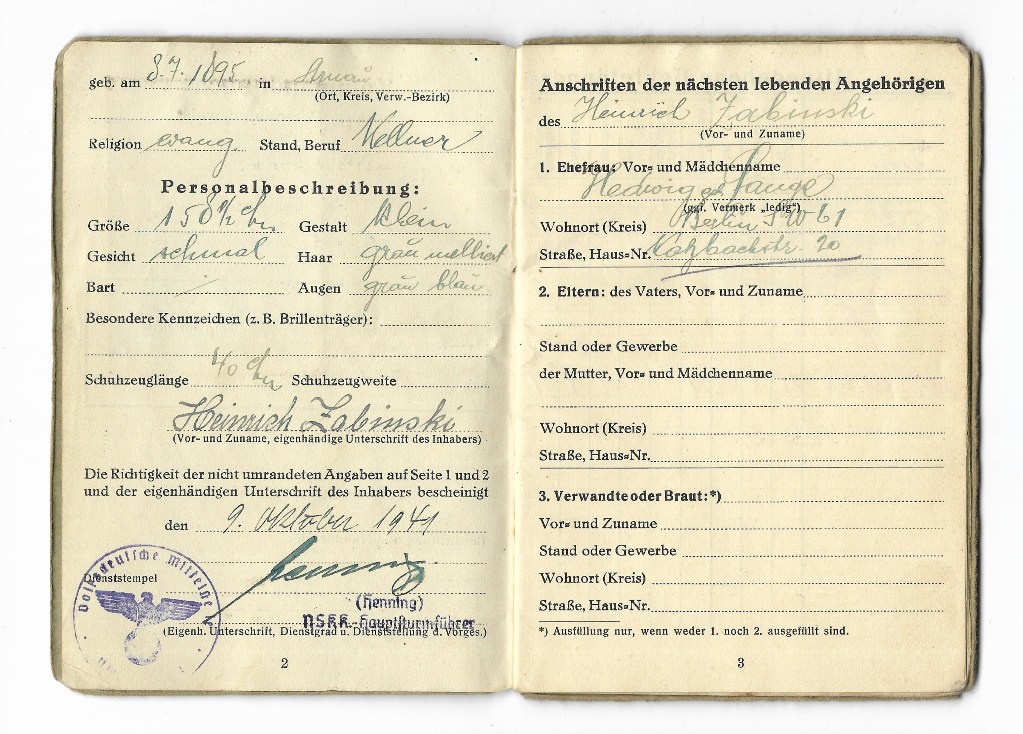 geb. am 3.7.1895 in Arnau
(Ort, Kreis, Verw.-Bezirk)
Religion evang. Stand, Beruf Kellner
Personalbeschreibung:
Größe 1 50½ cm Gestalt klein
Gesicht schmal Haar grau melliert
Bart / Augen grau blau
Besondere Kennzeichen (z. B. Brillenträger):
Schuhzeuglänge 40 cm Schuhzeugweite
Heinrich Zabinski
(Vor- und Zuname, eigenhändige Unterschrift des Inhabers)
Die Richtigkeit der nicht umrandeten Angaben auf Seite 1 und 2
und der eigenhändigen Unterschrift des Inhabers bescheinigt
den 9. Oktober 1941
Henning
Volksdeutsche Mittelste
Dienststempel
(Henning)
NSKK-Hauptsturmführer
(Eigenh. Unterschrift, Dienstgrad u. Dienststellung d. Vorges.)
2
Anschriften der nächsten lebenden Angehörigen
des Heinrich Zabinski
(Vor- und Zuname)
1. Ehefrau: Vor- und Mädchenname
Hedwig Lange
(ggf. Vermerk „ledig")
Wohnort (Kreis) Berlin SW 61
Straße, Haus-Nr. Katzbachstr. 20
2. Eltern: des Vaters, Vor- und Zuname
Stand oder Gewerbe
der Mutter, Vor- und Mädchenname
Wohnort (Kreis)
Straße, Haus-Nr.
3. Verwandte oder Braut:*)
Vor- und Zuname
Stand oder Gewerbe
Wohnort (Kreis)
Straße, Haus-Nr.
*) Ausfüllung nur, wenn weder 1. noch 2. ausgefüllt sind.
3